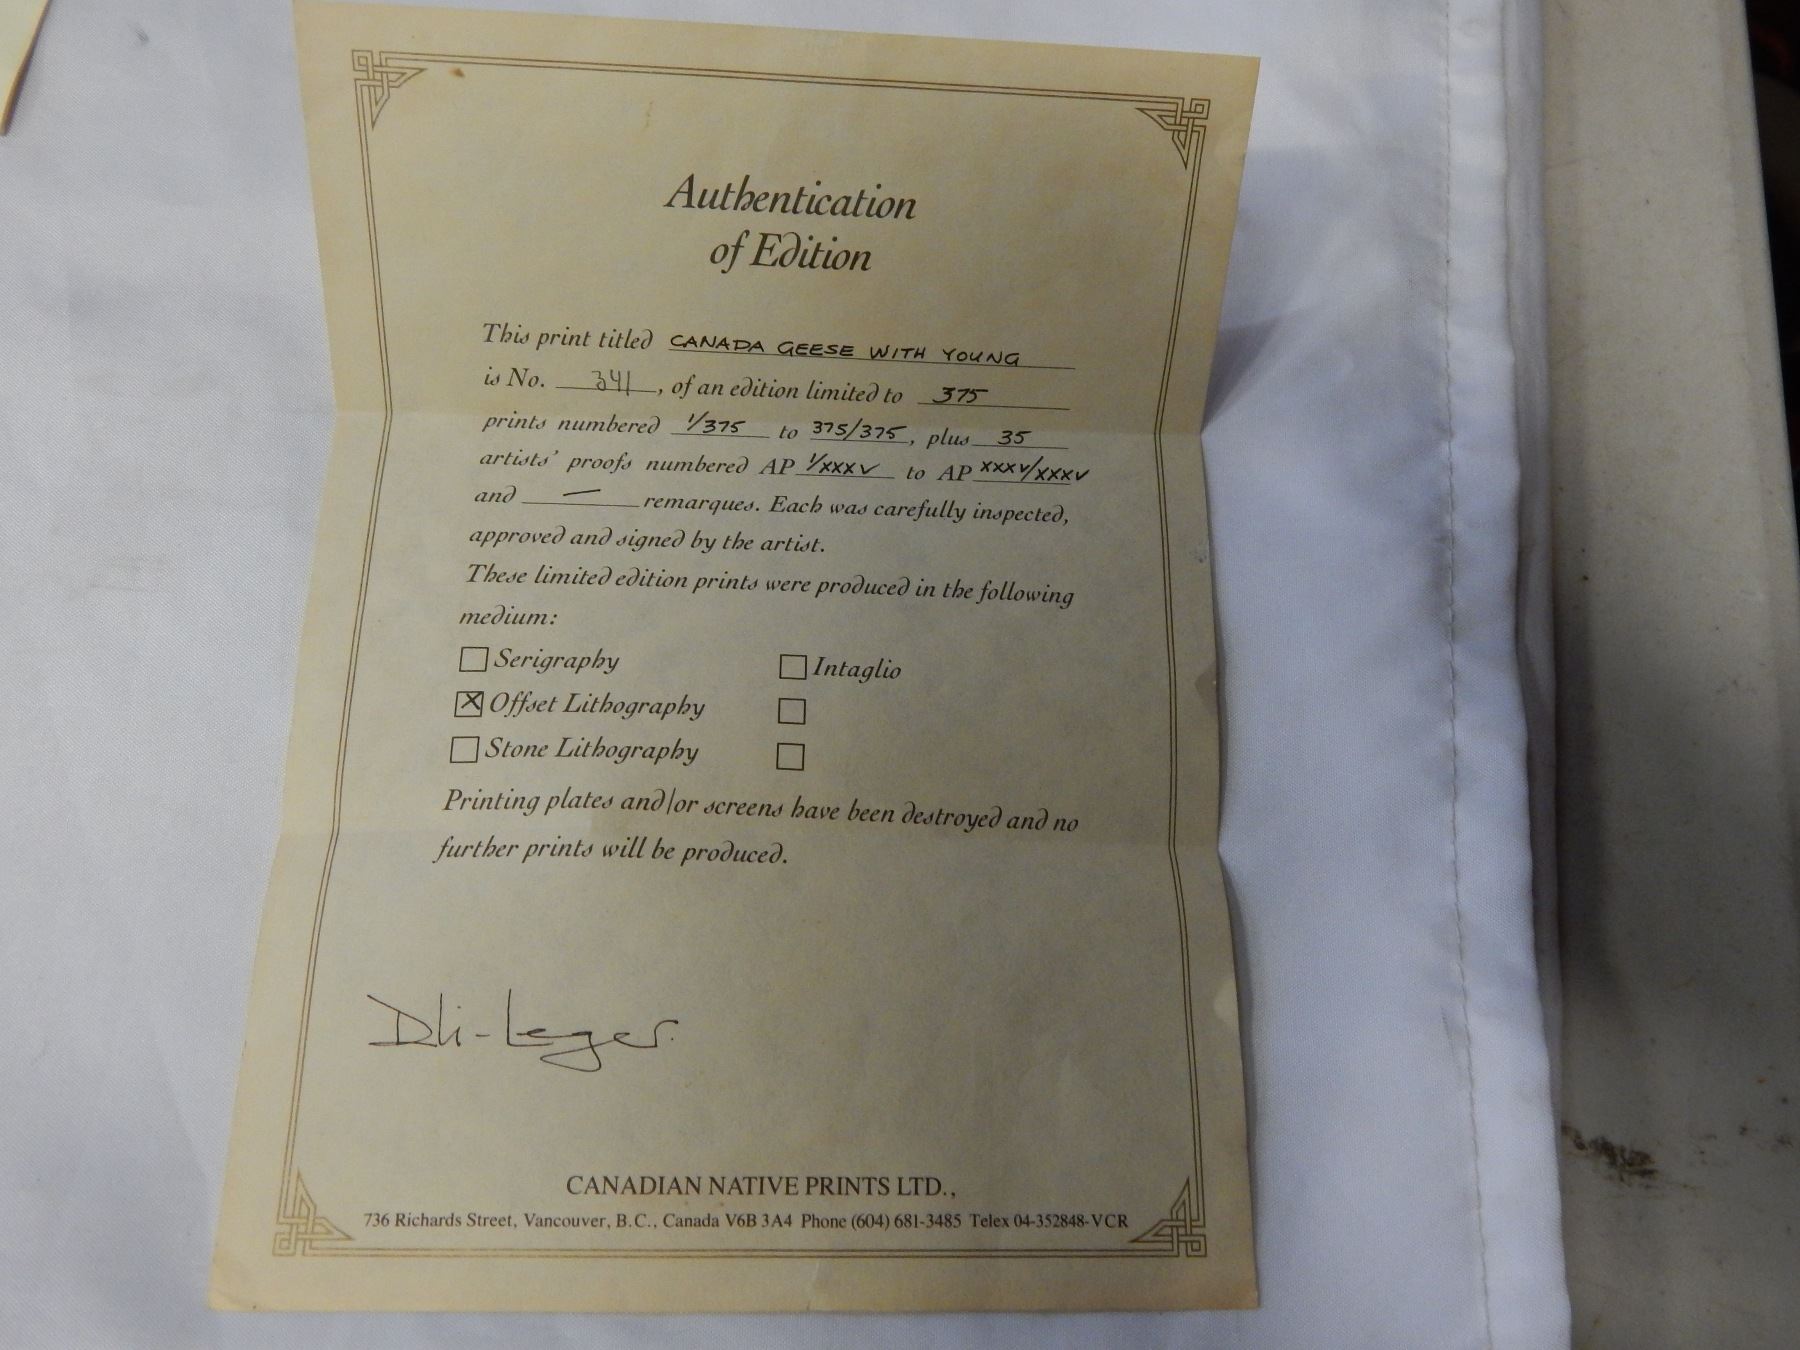 Authentication
of Edition
This print titled CANADA GEESE WITH YOUNG
is No. 341, of an edition limited to 375
prints numbered 1/375 to 375/375, plus 35
artists' proofs numbered AP 1/xxxv to AP xxxv/xxxv
and — remarques. Each was carefully inspected,
approved and signed by the artist.
These limited edition prints were produced in the following
medium:
Serigraphy Intaglio
Offset Lithography
Stone Lithography
Printing plates and/or screens have been destroyed and no
further prints will be produced.
CANADIAN NATIVE PRINTS LTD.,
736 Richards Street, Vancouver, B.C., Canada V6B 3A4 Phone (604) 681-3485 Telex 04-352848-VCR